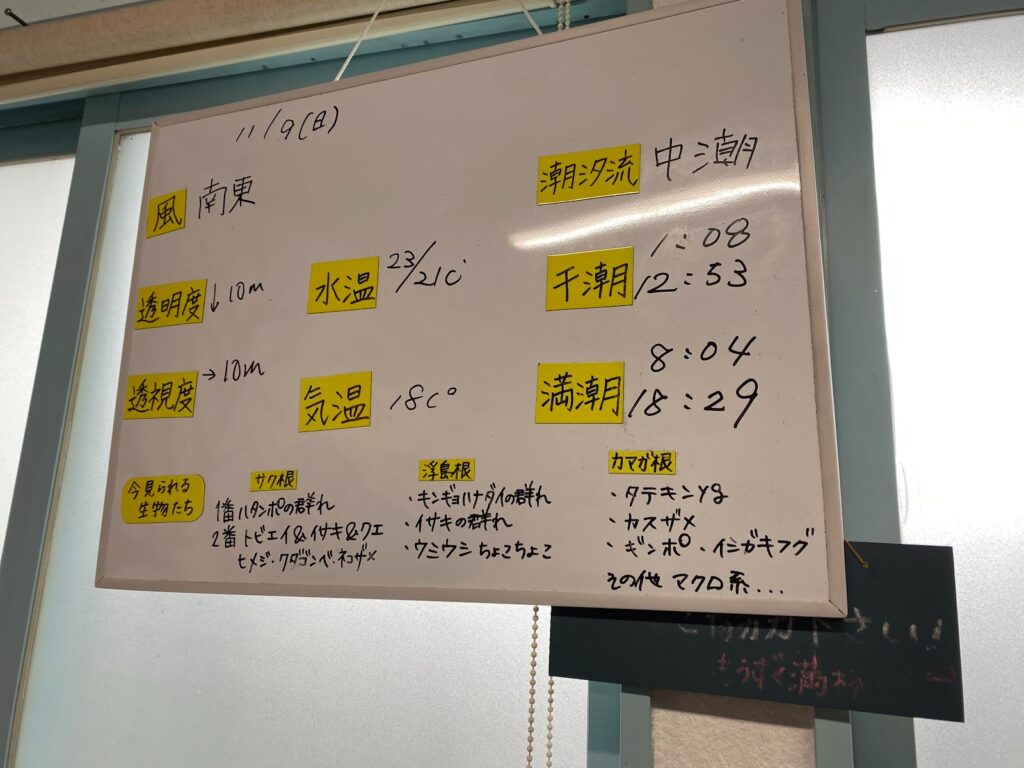 11/9(日)
風 南東
潮汐流 中潮
透明度 ↓10m
水温 23/21℃
干潮 1:08
12:53
透視度 →10m
気温 18C°
満潮 8:04
18:29
今見られる
生物たち
サク根
1番 ハタンポの群れ
2番 トビエイ&イサキ&クエ
ヒメジ・クダゴンベ・ネコザメ
浮島根
・キンギョハナダイの群れ
・イサキの群れ
・ウミウシ ちょこちょこ
カマガ根
・タテキンYg
・カスザメ
・ギンポ ・イシガキフグ
その他 マクロ系...
下さい!
もうすぐ満